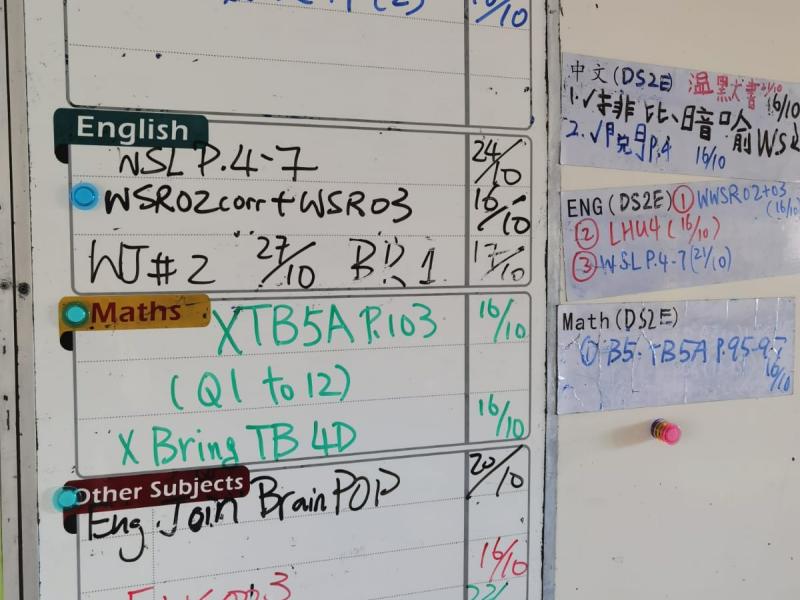 16/10
English
WSL P.4-7 24/10
WSR02corr+WSR03 16/10
WJ#2 27/10 BD 1 17/10
Maths
XTB5A P.103 16/10
(Q1 to 12)
X Bring TB 4D 16/10
Other Subjects
Eng Join BrainPOP 20/10
16/10
中文(DS2E) 溫默大書
1.√排比、暗喻WS 16/10
2. P.4 16/10
ENG(DS2E) ① WWSR02+03
(16/10)
② LHU4(16/10)
③ WSL P.4-7(21/10)
Math(DS2E)
① B5. TB5A P.95-97
16/10